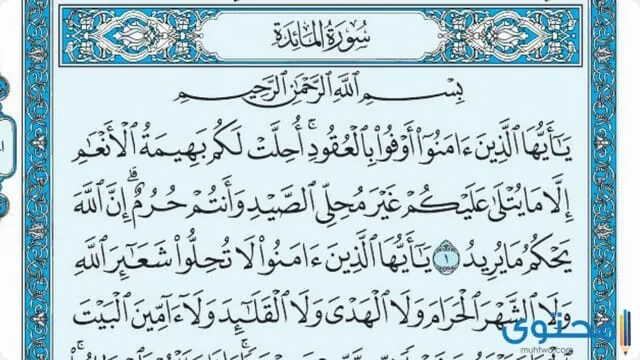 سُورَةُ المَائِدَةِ
بِسْمِ اللَّهِ الرَّحْمَٰنِ الرَّحِيمِ
يَٰٓأَيُّهَا الَّذِينَ ءَامَنُوٓا۟ أَوْفُوا۟ بِالْعُقُودِ ۚ أُحِلَّتْ لَكُم بَهِيمَةُ الْأَنْعَٰمِ
إِلَّا مَا يُتْلَىٰ عَلَيْكُمْ غَيْرَ مُحِلِّى الصَّيْدِ وَأَنتُمْ حُرُمٌ ۗ إِنَّ اللَّهَ
يَحْكُمُ مَا يُرِيدُ ١ يَٰٓأَيُّهَا الَّذِينَ ءَامَنُوا۟ لَا تُحِلُّوا۟ شَعَٰٓئِرَ اللَّهِ
وَلَا الشَّهْرَ الْحَرَامَ وَلَا الْهَدْىَ وَلَا الْقَلَٰٓئِدَ وَلَآ ءَآمِّينَ الْبَيْتَ
محتوى
muhtwa.com